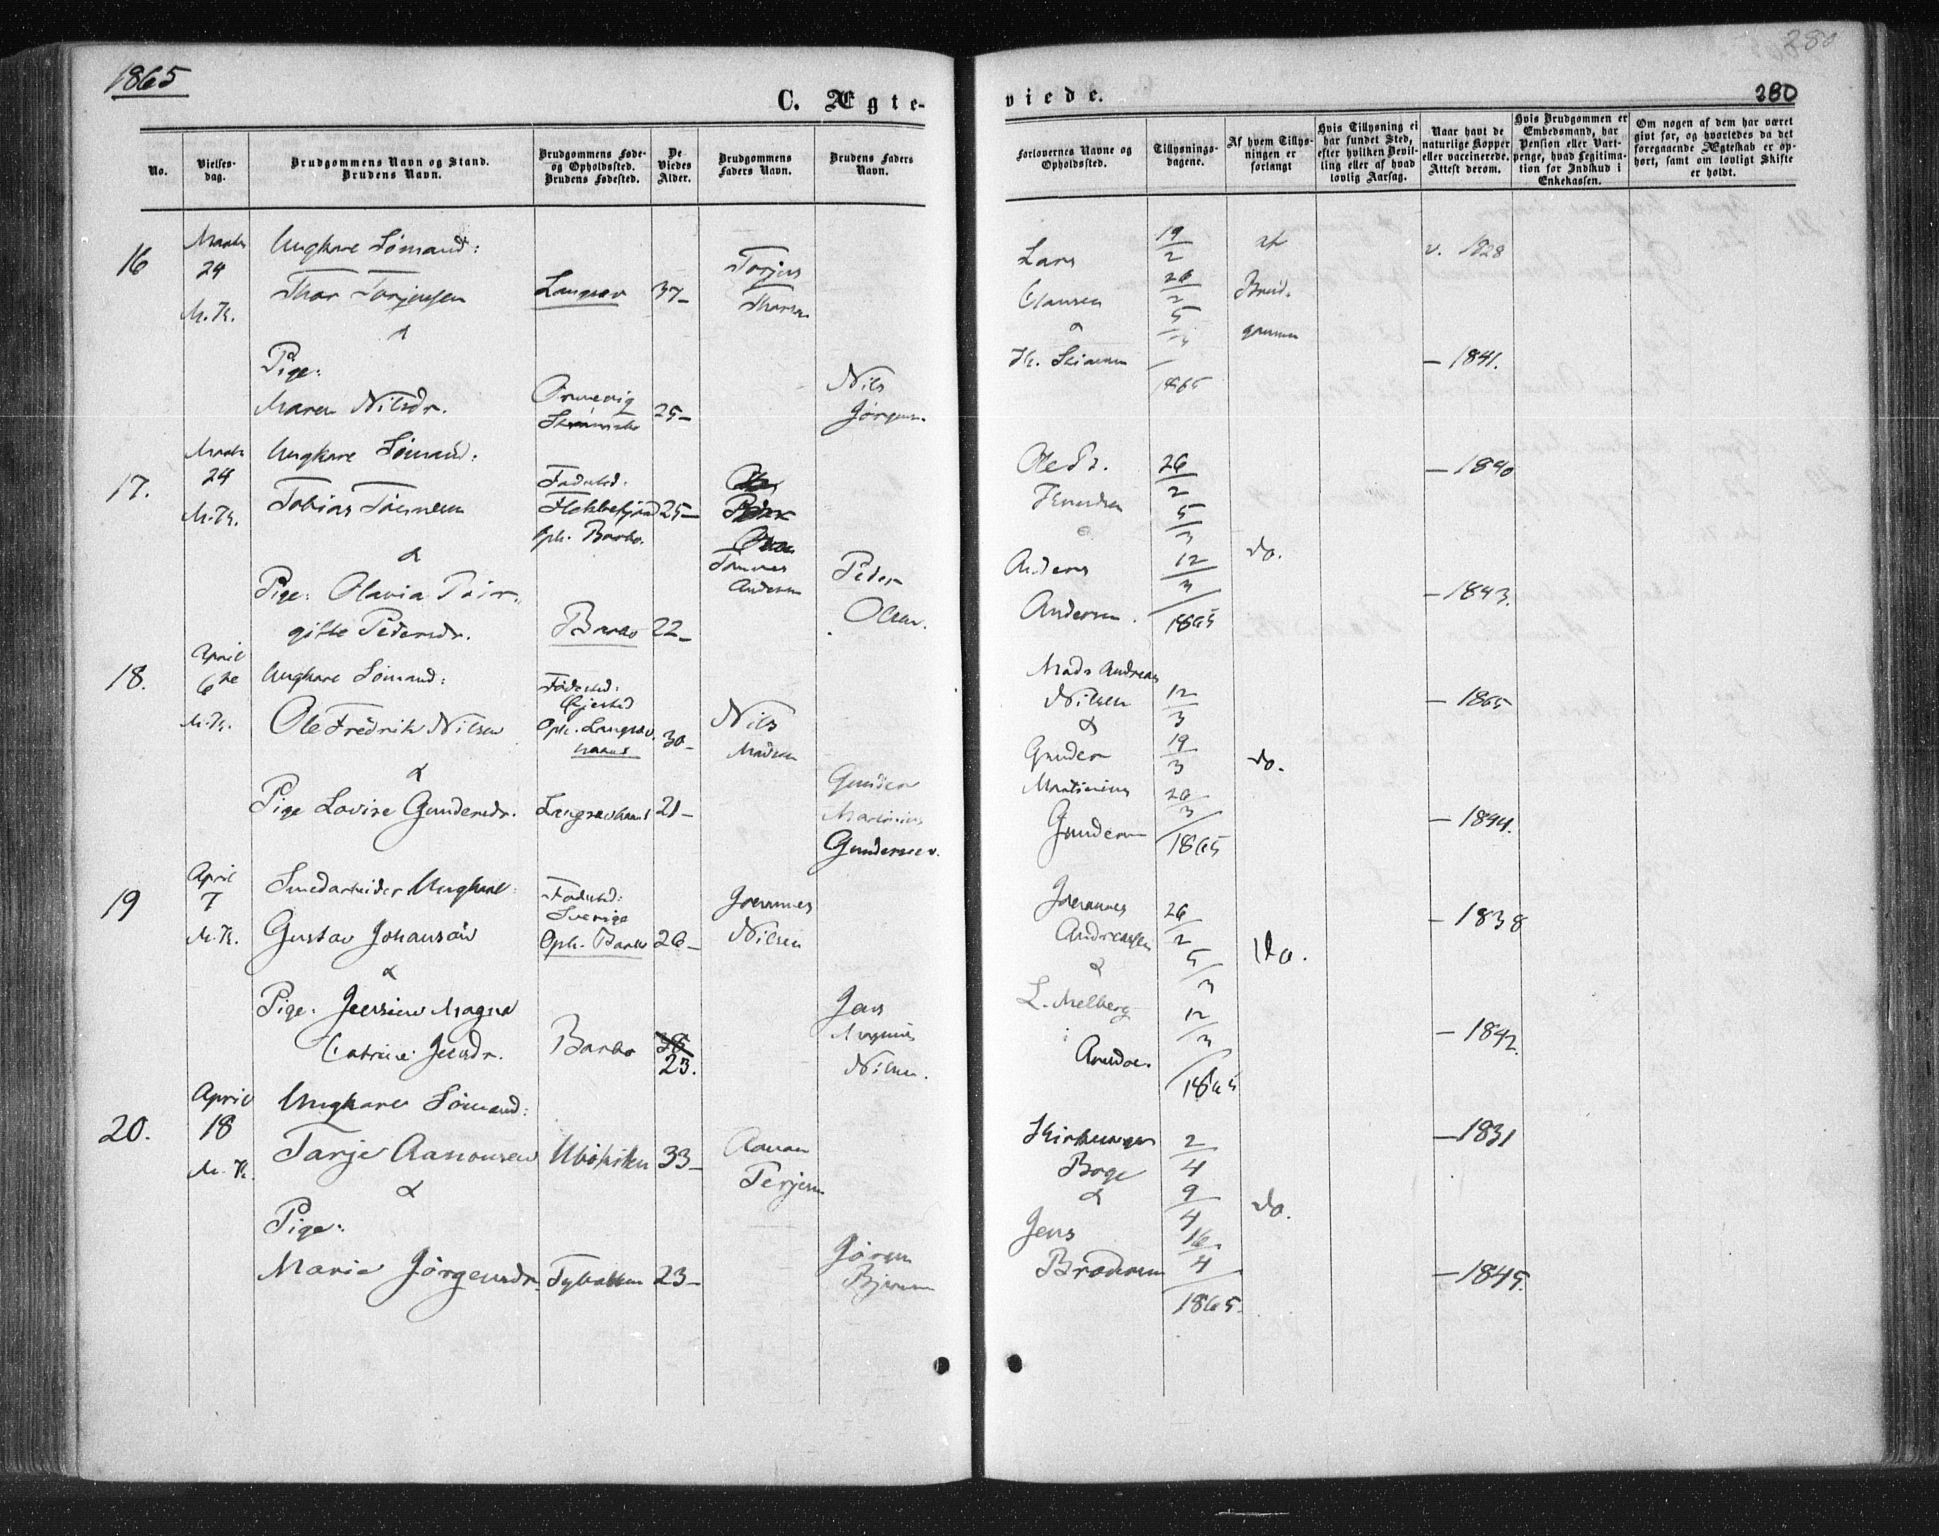 1865
280
C. Ægte-
viede.
280
No.
Vielses-
dag.
Brudgommens Navn og Stand.
Brudens Navn.
Brudgommens Føde-
og Opholdssted.
Brudens Fødested.
De
Viedes
Alder.
Brudgommens
Faders Navn.
Brudens Faders
Navn.
Forlovernes Navne og
Opholdssted.
Tillysnings-
dagene.
Af hvem Tillys-
ningen er
forlangt
Hvis Tillysning ei
har fundet Sted,
efter hvilken Bevil-
ling eller af hvad
lovlig Aarsag.
Naar havt de
naturlige Kopper
eller vaccinerede.
Attest derom.
Hvis Brudgommen er
Embedsmand, har
Pension eller Vart-
penge, hvad Legitima-
tion for Indskud i
Enkekassen.
Om nogen af dem har været
gift før, og hvorledes da det
foregaaende Ægteskab er op-
hørt, samt om lovligt Skifte
er holdt.
16
Marts
24
M.K.
Ungkarl Sømand:
Thor Torjensen
&
Pige:
Maren Nilsdr.
Langsæ 37-
25-
Torjus
Nils
Jørgens.
Lars
Clausen
&
19/2
26/2
5/3
1865
af
Brud-
gommen
v. 1828
- 1841.
17.
Marts
24
M.K.
Ungkarl Sømand:
Tobias Tønnesen
&
Pige: Olavia Bir-
gitte Pedersdr.
Fødested:
Flekkefjord 25-
Oph. Barbo.
Barbo 22-
Tønnes
Andersen
Peder
Olsen.
Ole
Knudsen
Anders
Andersen.
26/2
5/3
12/3
1865
do.
- 1840
- 1843.
18.
April
6te
M.K.
Ungkarl Sømand:
Ole Fredrik Nilsen
&
Pige Lovise Gundersdr.
Fødested:
Gjested
Oph. Langsæ
haant 30-
Langsæhaant 21-
Nils
Madsen
Gunder
Martinius
Gundersen.
Mads Andreas
Nilsen
&
Gunder
Martinius
Gundersen
12/3
19/3
26/3
1865
do.
- 1865
- 1844.
19
April
7
M.K.
Smedarbeider Ungkarl
Gustav Johanson
&
Pige. Jensine Magna
Catrine Jensdr.
Fødested:
Sverige
Oph. Barbo 26-
Barbo
23.
Johannes
Nilsen
Jens
Magnus
Nilsen.
Johannes
Andreassen
&
L. Melberg
i
Arendal
26/2
5/3
12/3
1865
do.
- 1838
- 1842.
20.
April
18
M.K.
Ungkarl Sømand:
Tarje Aanonsen
&
Pige:
Marie Jørgensdr.
33-
23-
Aanon
Terjesen
Jørgen
Boge
&
Jens
Brodersen
2/4
9/4
16/4
1865.
do.
- 1831
- 1845.